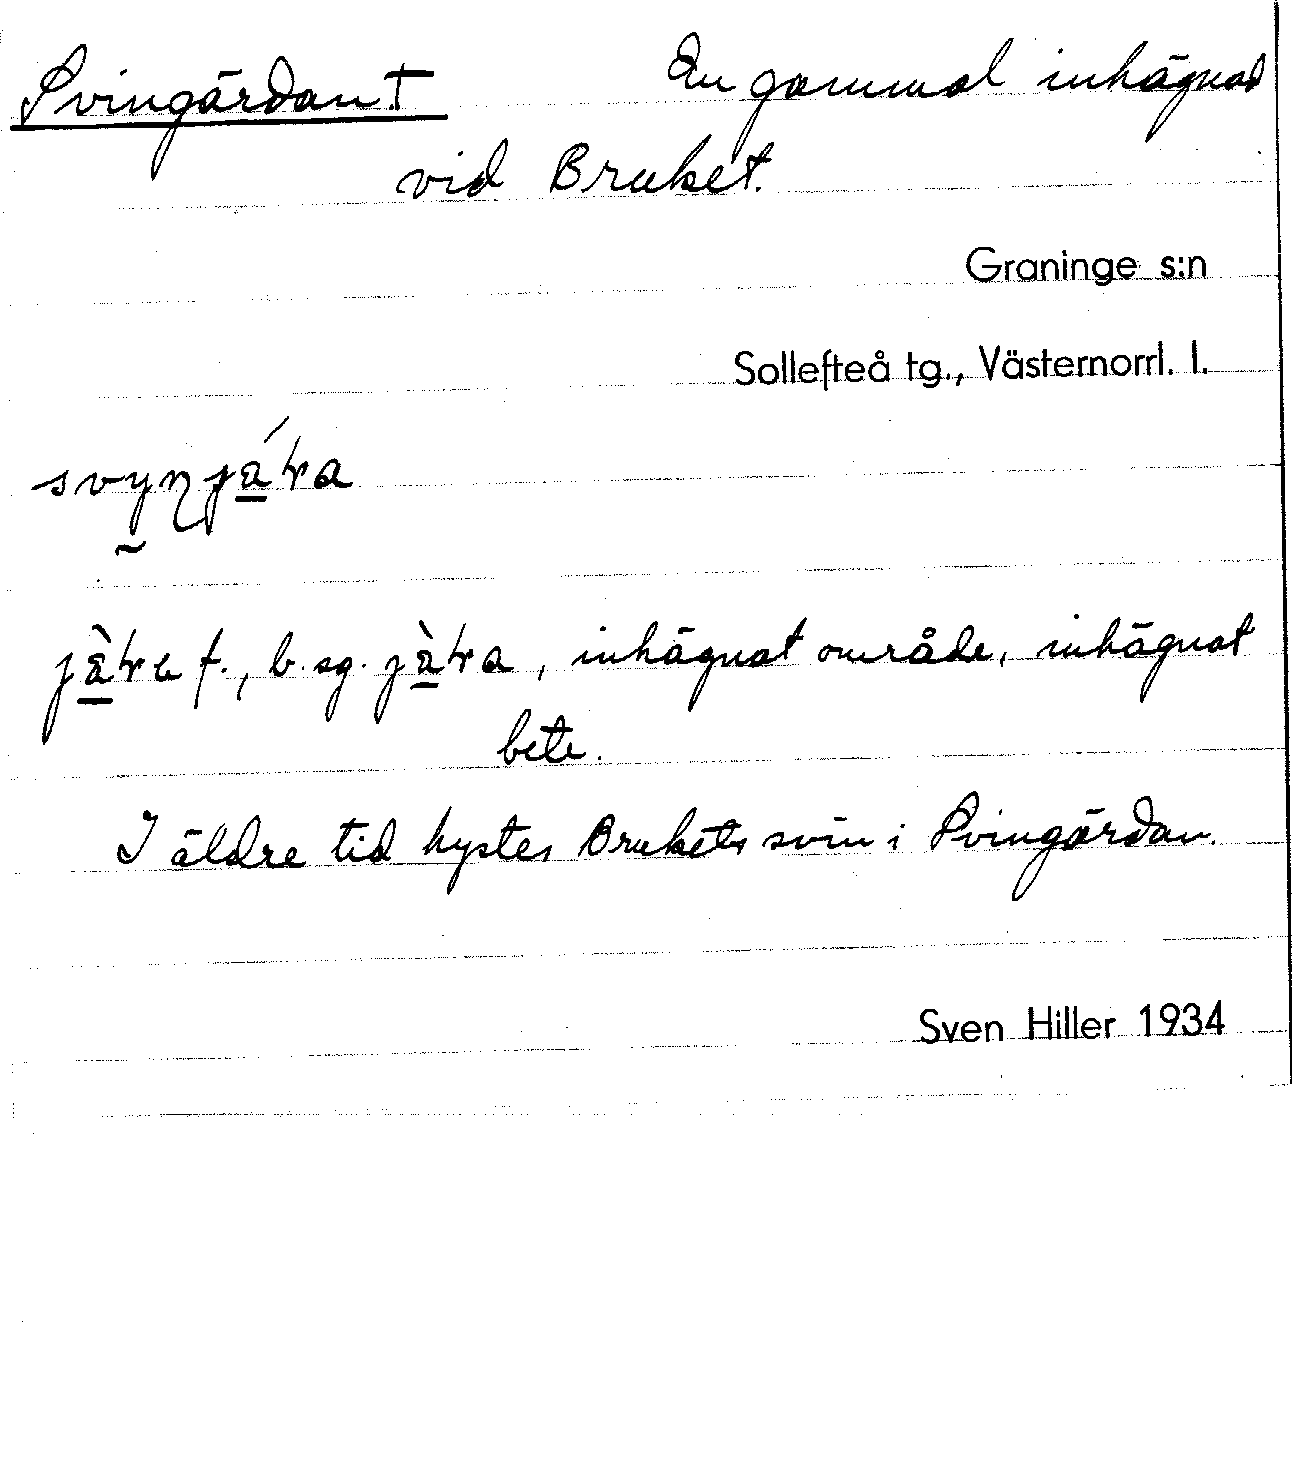 Svingärdan †
En gammal inhägnad
vid Bruket.
Graninge s:n
Sollefteå tg., Västernorrl. l.
f., b. sg. , inhägnat område, inhägnat
bete.
I äldre tid hystes Brukets svin i Svingärdan.
Sven Hiller 1934